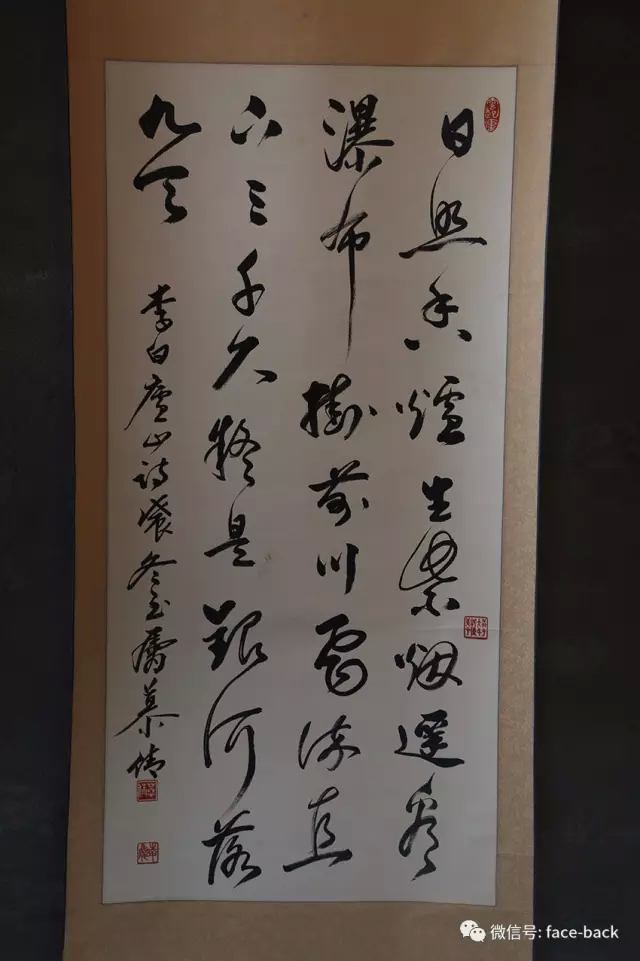 日照香爐生紫烟遥看
瀑布掛前川飛流直
下三千尺疑是銀河落
九天
李白廬山诗 冬 慕倩
微信号: face-back